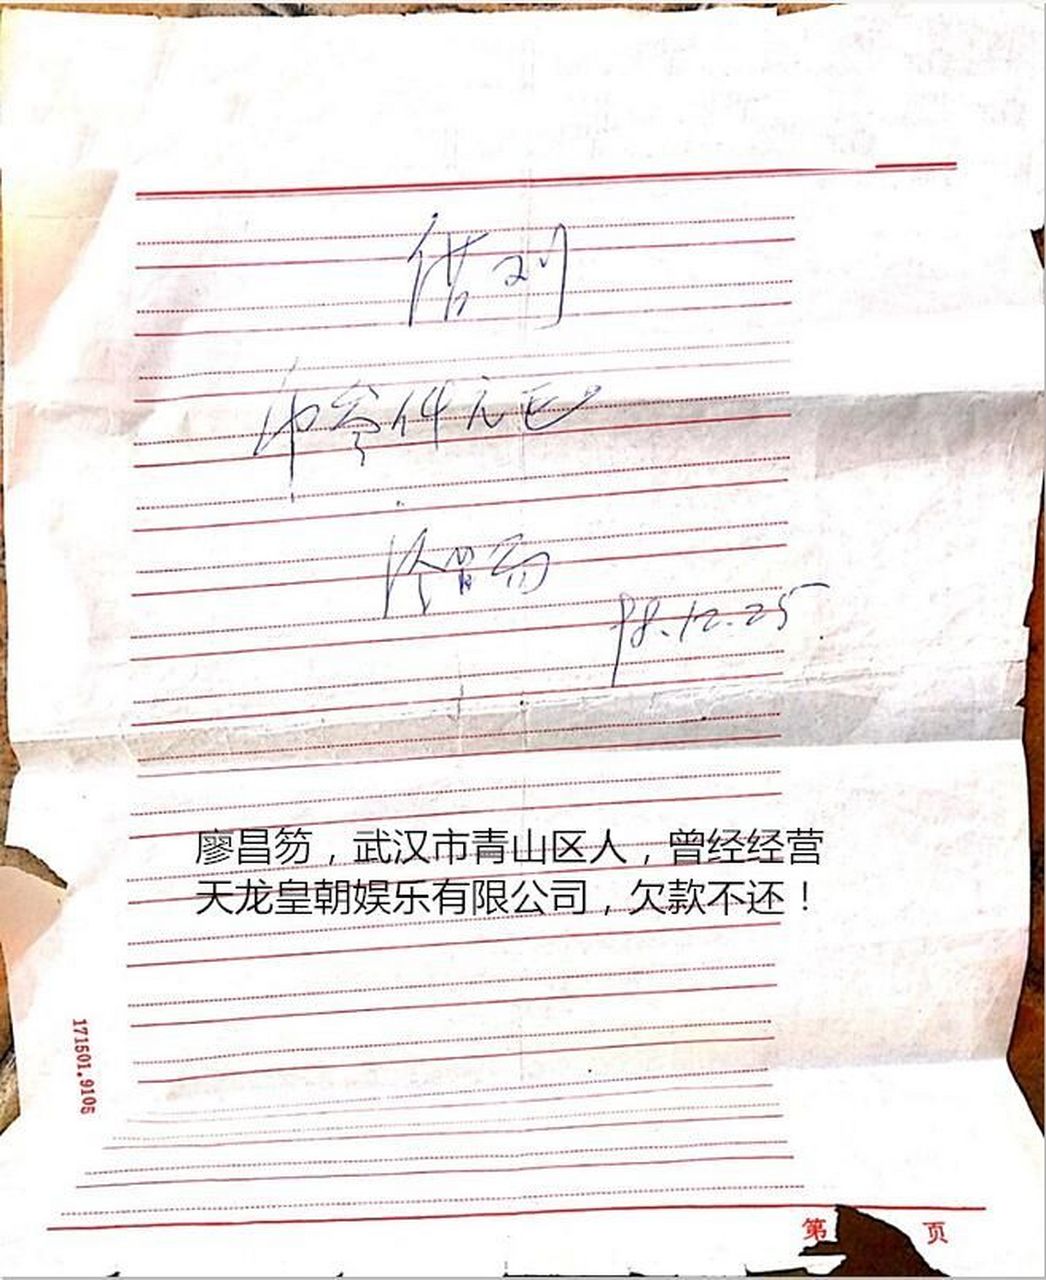 借到
98.12.25
廖昌笏，武汉市青山区人，曾经经营
天龙皇朝娱乐有限公司，欠款不还！
171501.9105
第 页